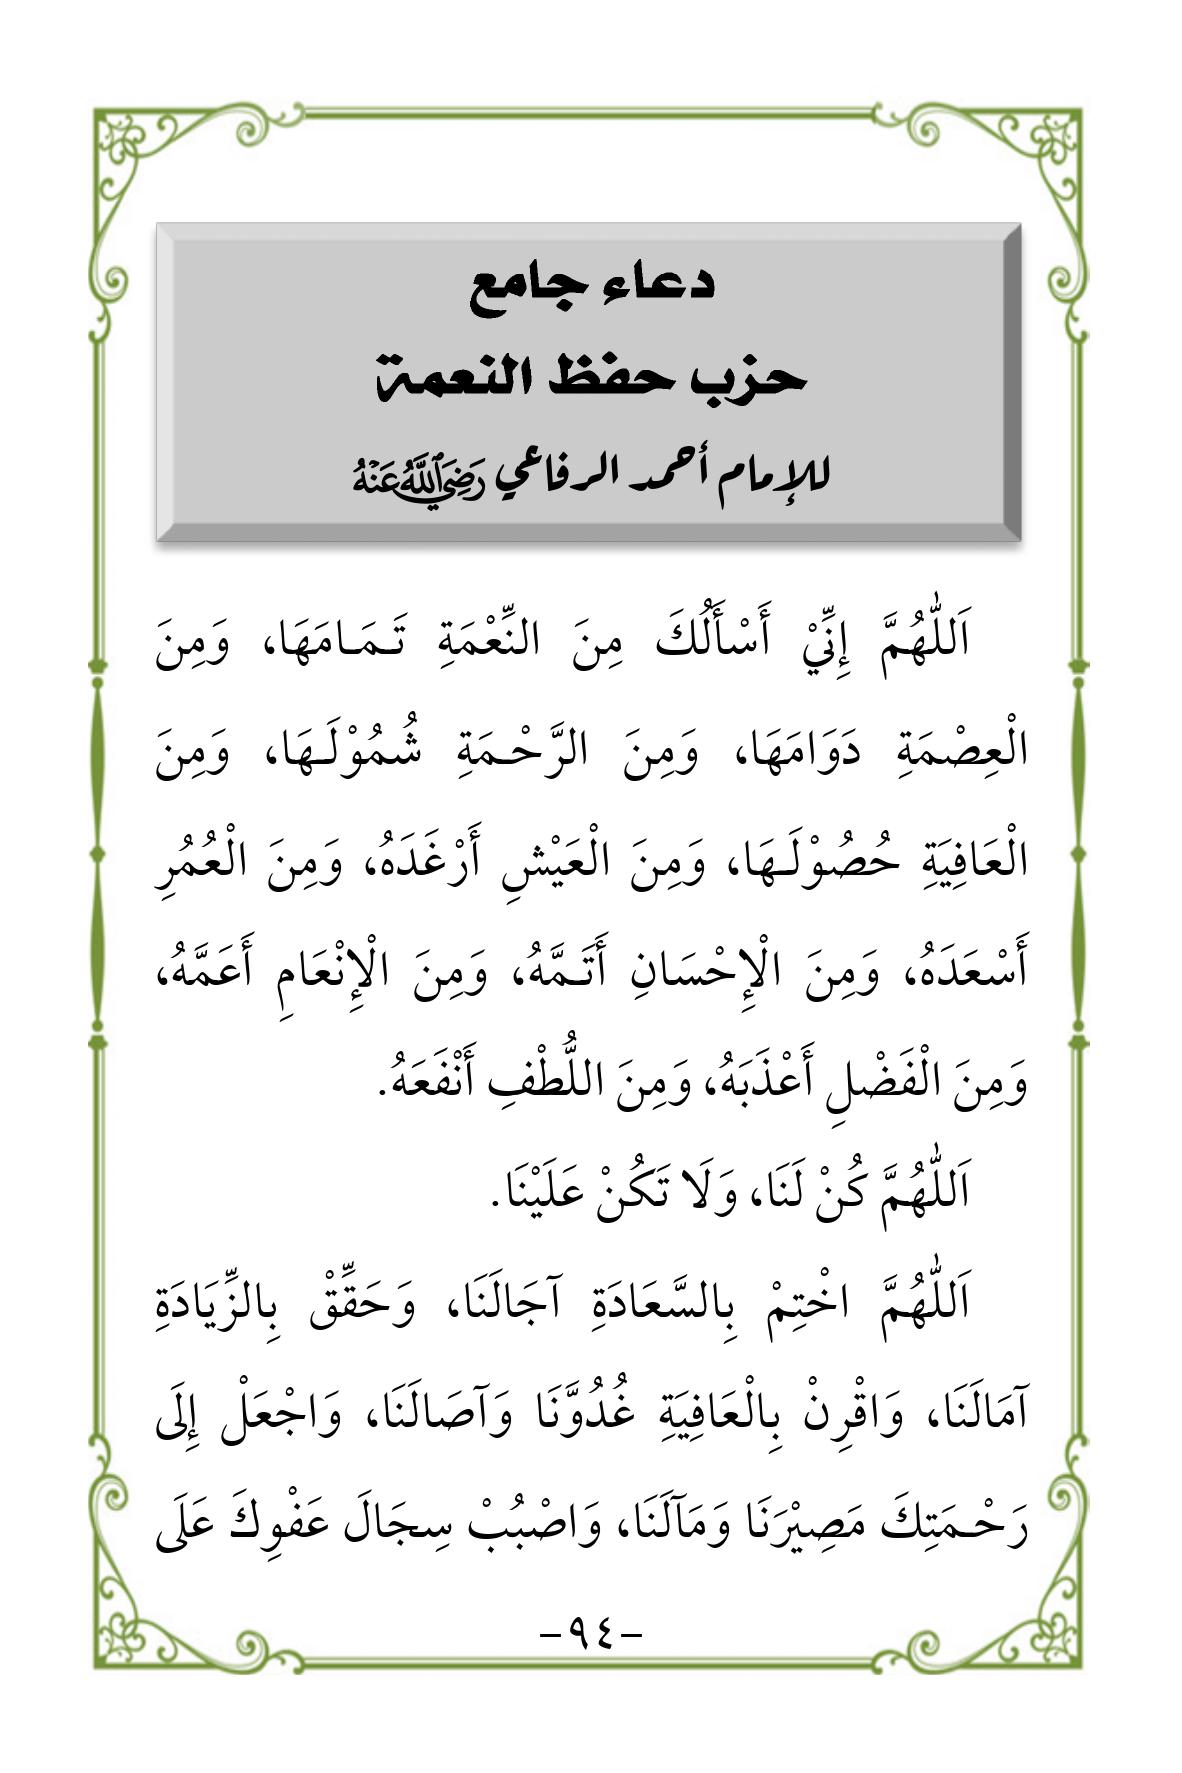 دعاء جامع
حزب حفظ النعمة
للإمام أحمد الرفاعي رَضِيَ اللَّهُ عَنْهُ
اَللّٰهُمَّ إِنِّيْ أَسْأَلُكَ مِنَ النِّعْمَةِ تَـمَـامَهَا، وَمِنَ
الْعِصْمَةِ دَوَامَهَا، وَمِنَ الرَّحْـمَةِ شُمُوْلَـهَا، وَمِنَ
الْعَافِيَةِ حُصُوْلَـهَا، وَمِنَ الْعَيْشِ أَرْغَدَهُ، وَمِنَ الْعُمُرِ
أَسْعَدَهُ، وَمِنَ الْإِحْسَانِ أَتَـمَّهُ، وَمِنَ الْإِنْعَامِ أَعَمَّهُ،
وَمِنَ الْفَضْلِ أَعْذَبَهُ، وَمِنَ اللُّطْفِ أَنْفَعَهُ.
اَللّٰهُمَّ كُنْ لَنَا، وَلَا تَكُنْ عَلَيْنَا.
اَللّٰهُمَّ اخْتِمْ بِالسَّعَادَةِ آجَالَنَا، وَحَقِّقْ بِالزِّيَادَةِ
آمَالَنَا، وَاقْرِنْ بِالْعَافِيَةِ غُدُوَّنَا وَآصَالَنَا، وَاجْعَلْ إِلَى
رَحْـمَتِكَ مَصِيْرَنَا وَمَآلَنَا، وَاصْبُبْ سِجَالَ عَفْوِكَ عَلَى
-٩٤-